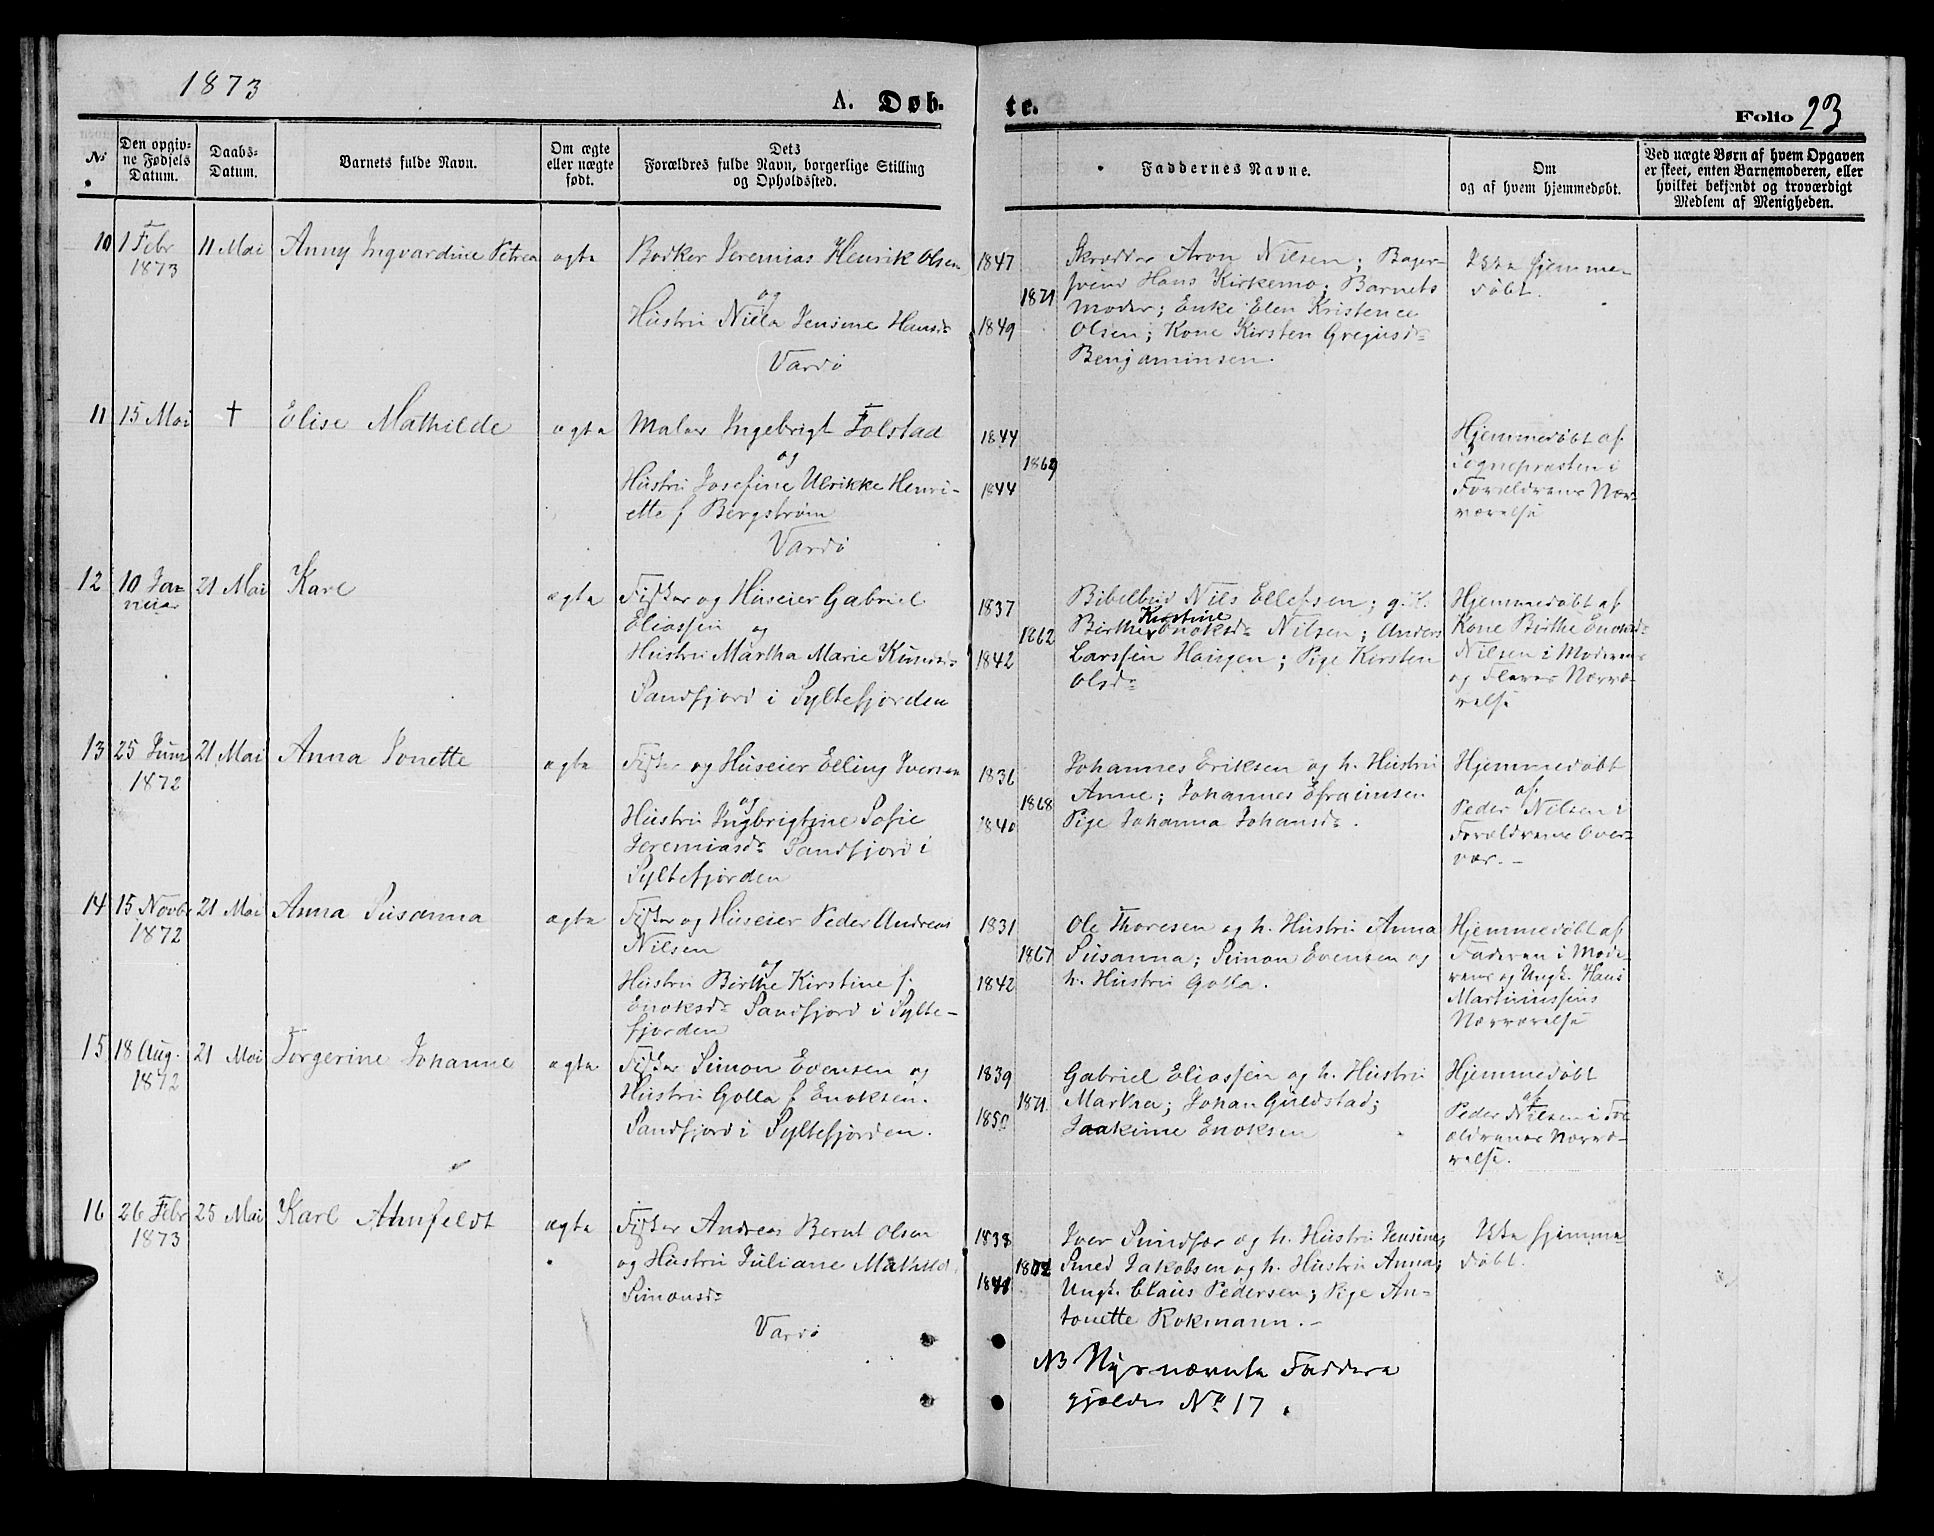 1873
A. Døb-
te.
Folio 23
No.
Den opgiv-
ne Fødsels
Datum.
Daabs-
Datum.
Barnets fulde Navn.
Om ægte
eller uægte
født.
Dets
Forældres fulde Navn, borgerlige Stilling
og Opholdssted.
Faddernes Navne.
Om
og af hvem hjemmedøbt.
Ved uægte Børn af hvem Opgaven
er skeet, enten Barnemoderen, eller
hvilket bekjendt og troværdigt
Medlem af Menigheden.
10 1 Febr 1873
11 Mai
Anny Ingvardine Petrea
ægte
Bødker Jeremias Henrik Olsen
og
Hustru Nilla Jensine Hansdr
Vardø
1847
1871
1849
Skrædder Aron Nilsen; Bager-
svend Hans Kirkemo; Barnets
Moder; Enke Elen Kristence
Olsen; Kone Kirsten Gregusdr
Benjaminsen.
Ikke hjemme-
døbt.
11 15 Mai
†
Elise Mathilde
ægte
Maler Ingebrigt Folstad
og
Hustru Josefine Ulrikke Henri-
ette f Bergstrøm
Vardø
1844
1869
1844
Hjemmedøbt af
Sognepræsten i
Forældrenes Nær-
værelse
12 10 Ja-
nuar
21 Mai
Karl
ægte
Fisker og Huseier Gabriel
Eliassen
og
Hustru Martha Marie
Sandfjord i Syltefjorden
1837
1862
1842
Bibelbud Nils Ellefsen; g. K.
Kirstine
Birthe Enoksdr Nilsen; Anders
Larssen Haugen; Pige Kirsten
Olsdr
Hjemmedøbt af
Kone Birthe Enoksdr
Nilsen i Moderens
og Fleres Nærvæ-
relse
13 25 Juni
1872
21 Mai
Anna Jonette
ægte
Fisker og Huseier Elling Iversen
og
Hustru Ingbrigtine Sofie
Jeremiasdr Sandfjord i
Syltefjorden
1836
1868
1840
Johannes Eriksen og h. Hustru
Anne; Johannes Efraimsen
Pige Johanna Johansdr.
Hjemmedøbt
af
Peder Nilsen i
Forældrenes Over-
vær. –
14 15 Novbr
1872
21 Mai
Anna Susanna
ægte
Fisker og Huseier Peder Andreas
Nilsen
og
Hustru Birthe Kirstine f.
Enoksdr Sandfjord i Sylte-
fjorden
1831
1867
1842
Ole Thoresen og h. Hustru Anna
Susanna; Simon Evensen og
h. Hustru Golla.
Hjemmedøbt af
Faderen i Mode-
rens og Ungk. Hans
Martinussens
Nærværelse
15 18 Aug.
1872
21 Mai
Torgerine Johanne
ægte
Fisker Simon Evensen og
Hustru Golla f Enoksen.
Sandfjord i Syltefjorden.
1839
1871
1850
Gabriel Eliassen og h. Hustru
Martha; Johan Guldstad;
Joakime Enoksen
Hjemmedøbt
af
Peder Nilsen i For-
ældrenes Nærvæ-
relse.
16 26 Febr
1873
25 Mai
Karl Arnfeldt
ægte
Fisker Andreas Bernt Olsen
og Hustru Juliane Mathild.
Simonsdr
Vardø
1838
1872
Iver Sundfær og h. Hustru Jensine;
Smed Jakobsen og h. Hustru Anna;
Ungk. Claus Pedersen; Pige An-
tonette Rokmann. –
Ikke hjemme-
døbt.
NB Nysnævnte Faddere
gjælder No 17.